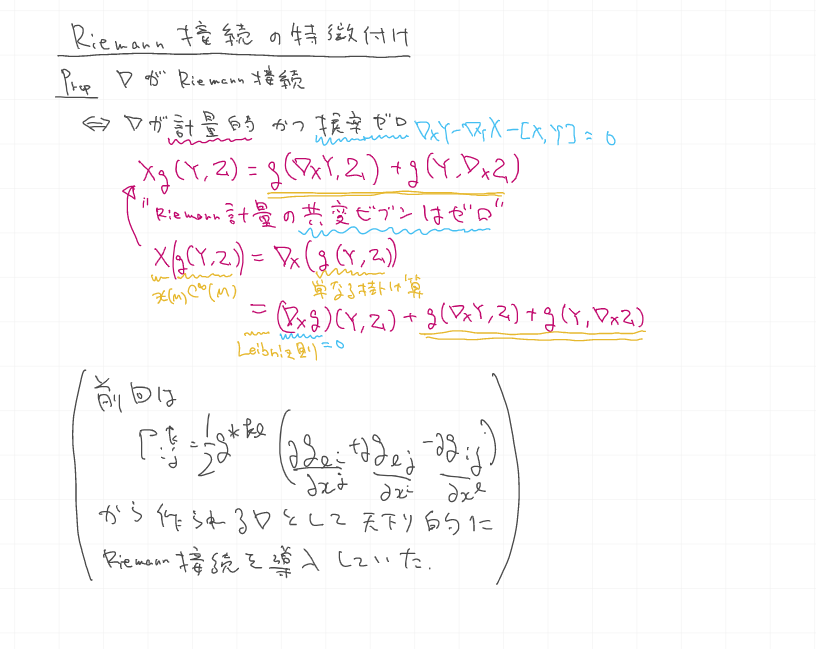 Riemann 接続の特徴付け
Prop ∇が Riemann 接続
⇔ ∇が計量的 かつ 捩率ゼロ ∇_XY-∇_YX-[X,Y]=0
Xg(Y,Z) = g(∇_XY,Z)+g(Y,∇_XZ)
"Riemann計量の共変ビブンはゼロ"
X(g(Y,Z)) = ∇_X(g(Y,Z))
𝔛(M) C^∞(M) 単なる掛け算
= (∇_Xg)(Y,Z)+g(∇_XY,Z)+g(Y,∇_XZ)
Leibniz則 =0
前回は
Γ^k_{ij} = 1/2 g^{*kl} (∂g_{li}/∂x^j + ∂g_{lj}/∂x^i - ∂g_{ij}/∂x^l)
から作られる∇として天下り的に
Riemann接続を導入していた.